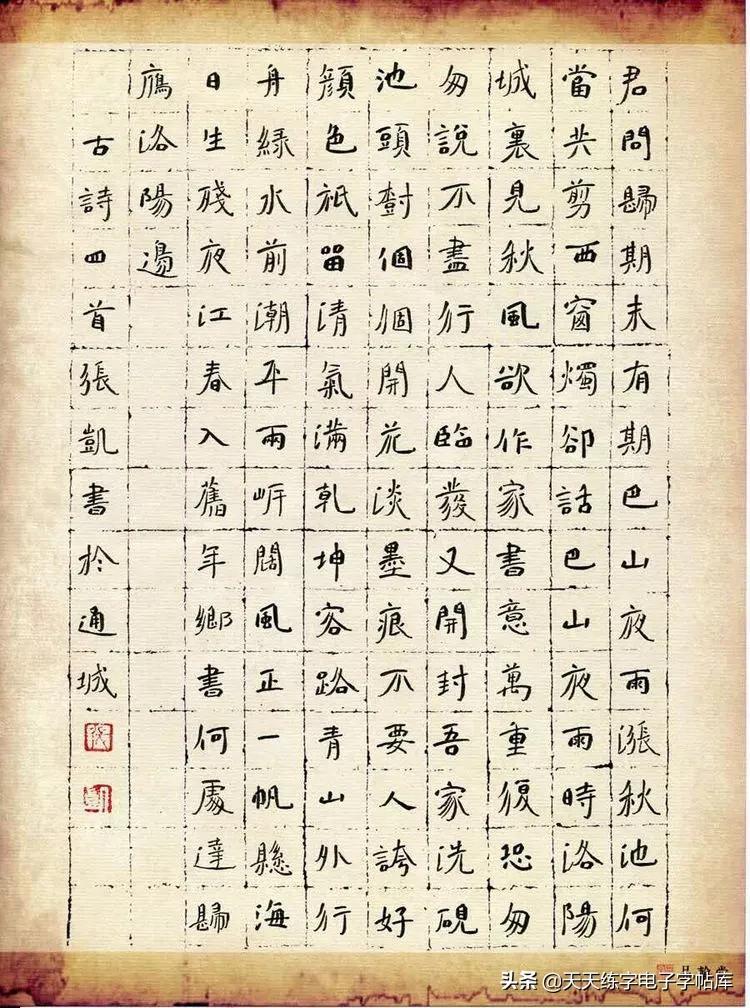 君問歸期未有期巴山夜雨漲秋池何
當共剪西窗燭卻話巴山夜雨時洛陽
城裏見秋風欲作家書意萬重復恐匆
匆說不盡行人臨發又開封吾家洗硯
池頭樹個個開花淡墨痕不要人誇好
顏色祇留清氣滿乾坤客路青山外行
舟綠水前潮平兩岸闊風正一帆懸海
日生殘夜江春入舊年鄉書何處達歸
鴈洛陽邊
古詩四首張凱書於通城
头条 @天天练字电子字帖库